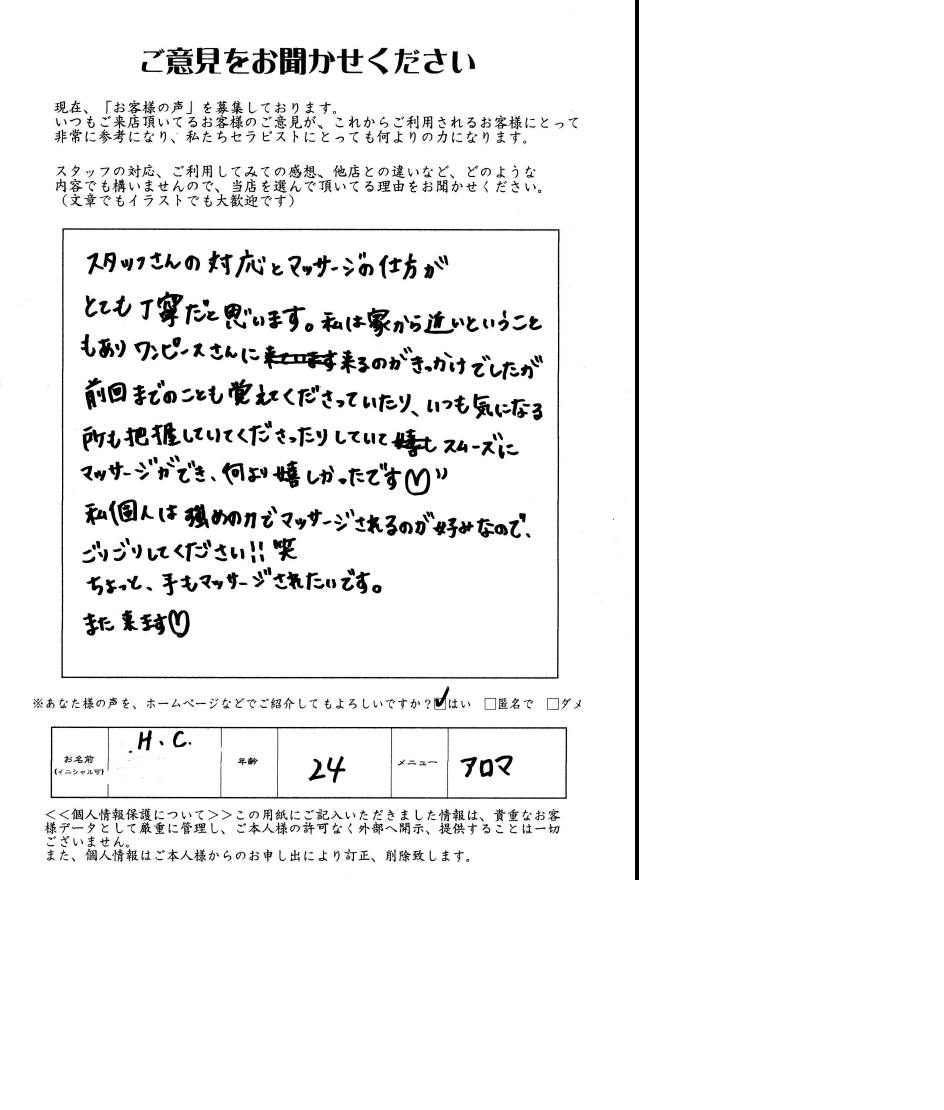 ご意見をお聞かせください
現在、「お客様の声」を募集しております。
いつもご来店頂いてるお客様のご意見が、これからご利用されるお客様にとって
非常に参考になり、私たちセラピストにとっても何よりの力になります。
スタッフの対応、ご利用してみての感想、他店との違いなど、どのような
内容でも構いませんので、当店を選んで頂いてる理由をお聞かせください。
（文章でもイラストでも大歓迎です）
スタッフさんの対応とマッサージの仕方が
とても丁寧だと思います。私は家から近いということ
もありワンピースさんに来るのがきっかけでしたが
前回までのことも覚えてくださっていたり、いつも気になる
所も把握していてくださったりしていてスムーズに
マッサージができ、何より嬉しかったです♡
私個人は強めの力でマッサージされるのが好みなので、
ごりごりしてください!! 笑
ちょっと、手もマッサージされたいです。
また来ます♡
※あなた様の声を、ホームページなどでご紹介してもよろしいですか？☑はい □匿名で □ダメ
お名前（イニシャル可） H.C. 年齢 24 メニュー アロマ
＜＜個人情報保護について＞＞この用紙にご記入いただきました情報は、貴重なお客
様データとして厳重に管理し、ご本人様の許可なく外部へ開示、提供することは一切
ございません。
また、個人情報はご本人様からのお申し出により訂正、削除致します。